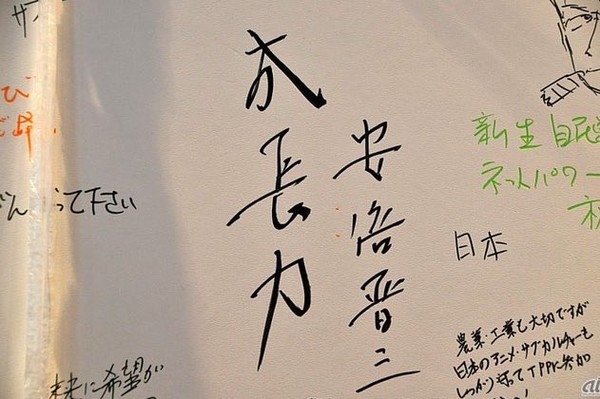 成長力
安倍晋三
サ
び
って下さい
新生自民
ネットパワー
日本
農業・工業も大切ですが
日本のアニメ・サブカルチャーも
しっかり守ってTPPに参加
未来に希望が